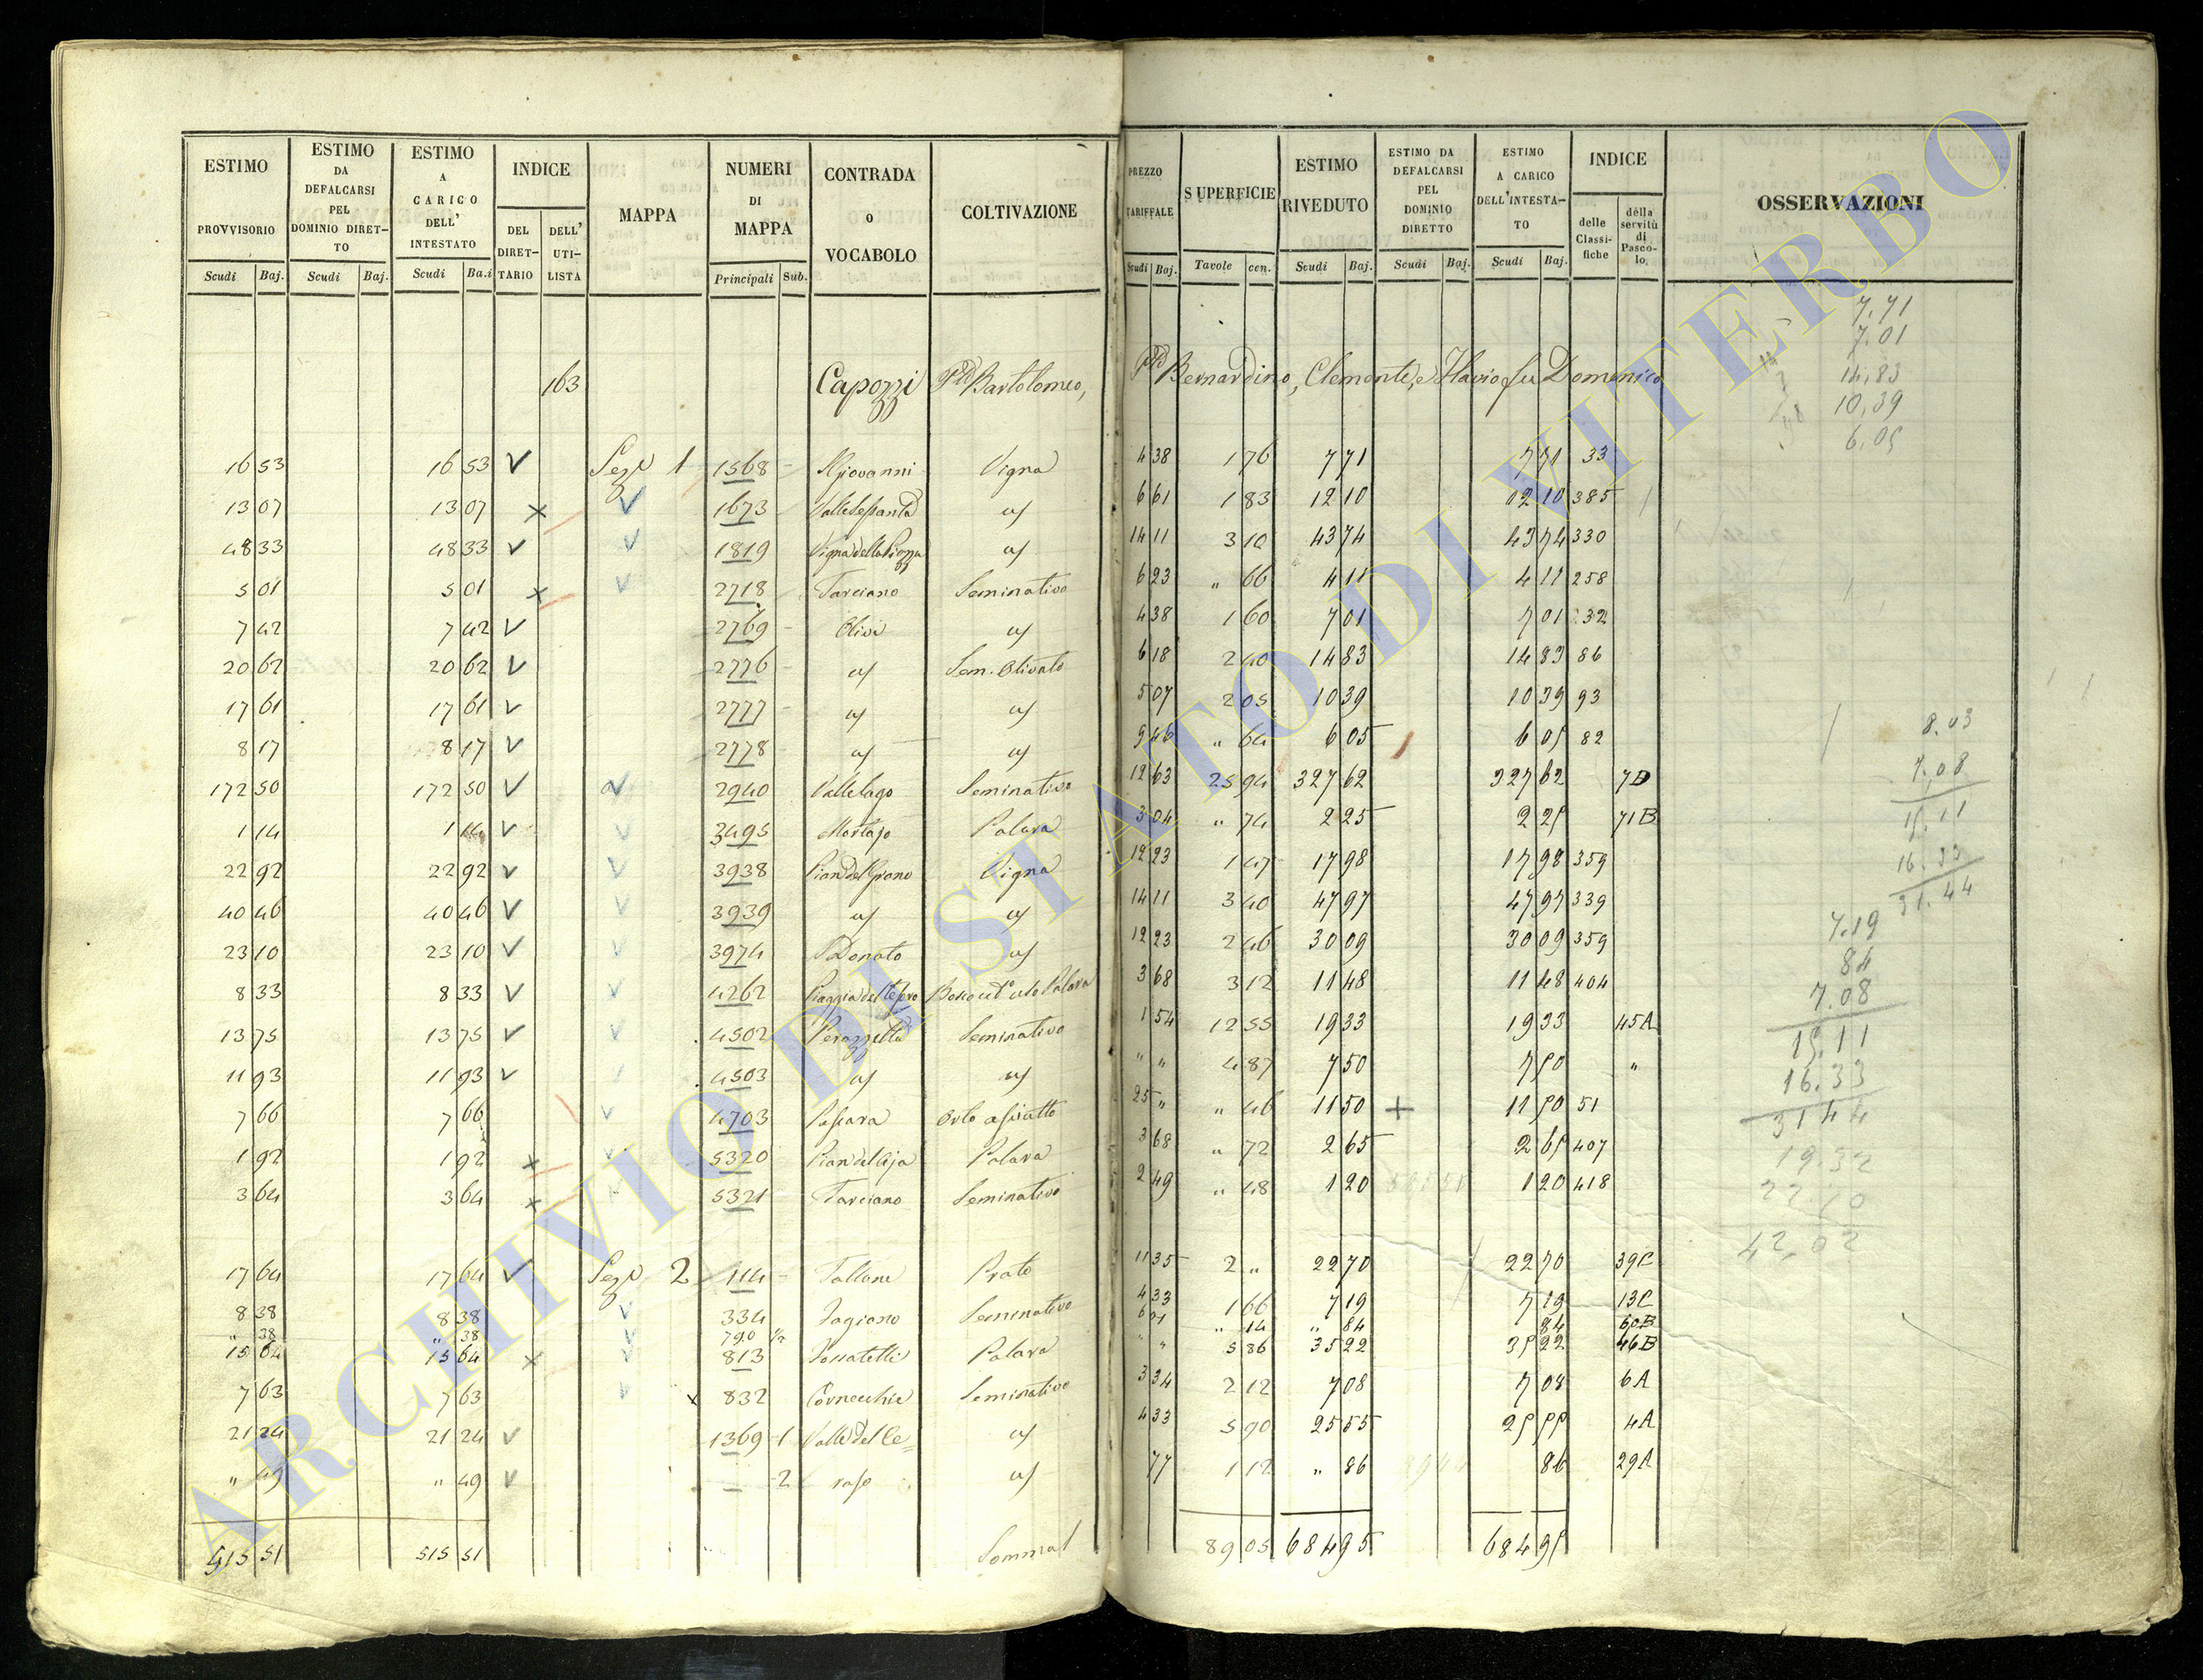 ESTIMO PROVVISORIO Scudi Baj.
ESTIMO DA DEFALCARSI PEL DOMINIO DIRETTO Scudi Baj.
ESTIMO A CARICO DELL' INTESTATO Scudi Ba.i
INDICE DEL DIRETTARIO DELL' UTILISTA
MAPPA
NUMERI DI MAPPA Principali Sub.
CONTRADA O VOCABOLO
COLTIVAZIONE
PREZZO TARIFFALE Scudi Baj.
SUPERFICIE Tavole cen.
ESTIMO RIVEDUTO Scudi Baj.
ESTIMO DA DEFALCARSI PEL DOMINIO DIRETTO Scudi Baj.
ESTIMO A CARICO DELL'INTESTATO Scudi Baj.
INDICE delle Classifiche della servitù di Pascolo
OSSERVAZIONI
7.71
7.01
14,83
10,39
6.05
163 Capozzi Bartolomeo, Bernardino, Clemente, e Flavio fu Domenico
16 53 16 53 V Sez. 1 1568 S. Giovanni Vigna 4 38 1 76 7 71 7 71 33
13 07 13 07 x V 1673 a/ 6 61 1 83 12 10 12 10 385
48 33 48 33 V V 1819 Vigna della Piazza a/ 14 11 3 10 43 74 43 74 330
5 01 5 01 x V 2718 Tarciano Seminativo 6 23 " 66 4 11 4 11 258
7 42 7 42 V 2769 Olivi a/ 4 38 1 60 7 01 7 01 32
20 62 20 62 V 2776 a/ Sem. Olivato 6 18 2 40 14 83 14 83 86
17 61 17 61 V 2777 a/ a/ 5 07 2 05 10 39 10 39 93
8 17 8 17 V 2778 a/ a/ 9 46 " 64 6 05 6 05 82
172 50 172 50 V V 2940 Vallelago Seminativo 12 63 25 94 327 62 327 62 7D
1 14 1 14 V V 3495 Palara 3 04 " 74 2 25 2 25 71B
22 92 22 92 V V 3938 Pian del Grano Vigna 12 23 1 47 17 98 17 98 359
40 46 40 46 V V 3939 a/ a/ 14 11 3 40 47 97 47 97 339
23 10 23 10 V V 3974 S. Donato a/ 12 23 2 46 30 09 30 09 359
8 33 8 33 V V 4262 Palara 3 68 3 12 11 48 11 48 404
13 75 13 75 V V 4502 Perazzetta Seminativo 1 54 12 55 19 33 19 33 45A
11 93 11 93 V 4503 a/ a/ " " 4 87 7 50 7 50 "
7 66 7 66 V 4703 Orto asciutto 25 " " 46 11 50 + 11 50 51
1 92 1 92 x V 5320 Pian del Aja Palara 3 68 " 72 2 65 2 65 407
3 64 3 64 x V 5321 Tarciano Seminativo 2 49 " 48 1 20 1 20 418
17 64 17 64 V Sez. 2 114 Prato 11 35 2 " 22 70 22 70 39C
8 38 8 38 V 334 Seminativo 4 33 1 66 7 19 7 19 13C
" 38 " 38 V 790 1/2 6 01 " 14 " 84 84 60B
15 64 15 64 x V 813 Palara " " 5 86 35 22 35 22 46B
7 63 7 63 V x 832 Cornecchie Seminativo 3 34 2 12 7 08 7 08 6A
21 24 21 24 V 1369 1 Valle del Ce= a/ 4 33 5 90 25 55 25 55 4A
" 49 " 49 V — 2 raso a/ 77 1 12 " 86 86 29A
515 51 515 51 Somma 89 05 684 95 684 95
8.03
7.08
15.11
16.33
31.44
7.19
84
7.08
15.11
16.33
31 44
19.32
22.70
42.02
ARCHIVIO DI STATO DI VITERBO